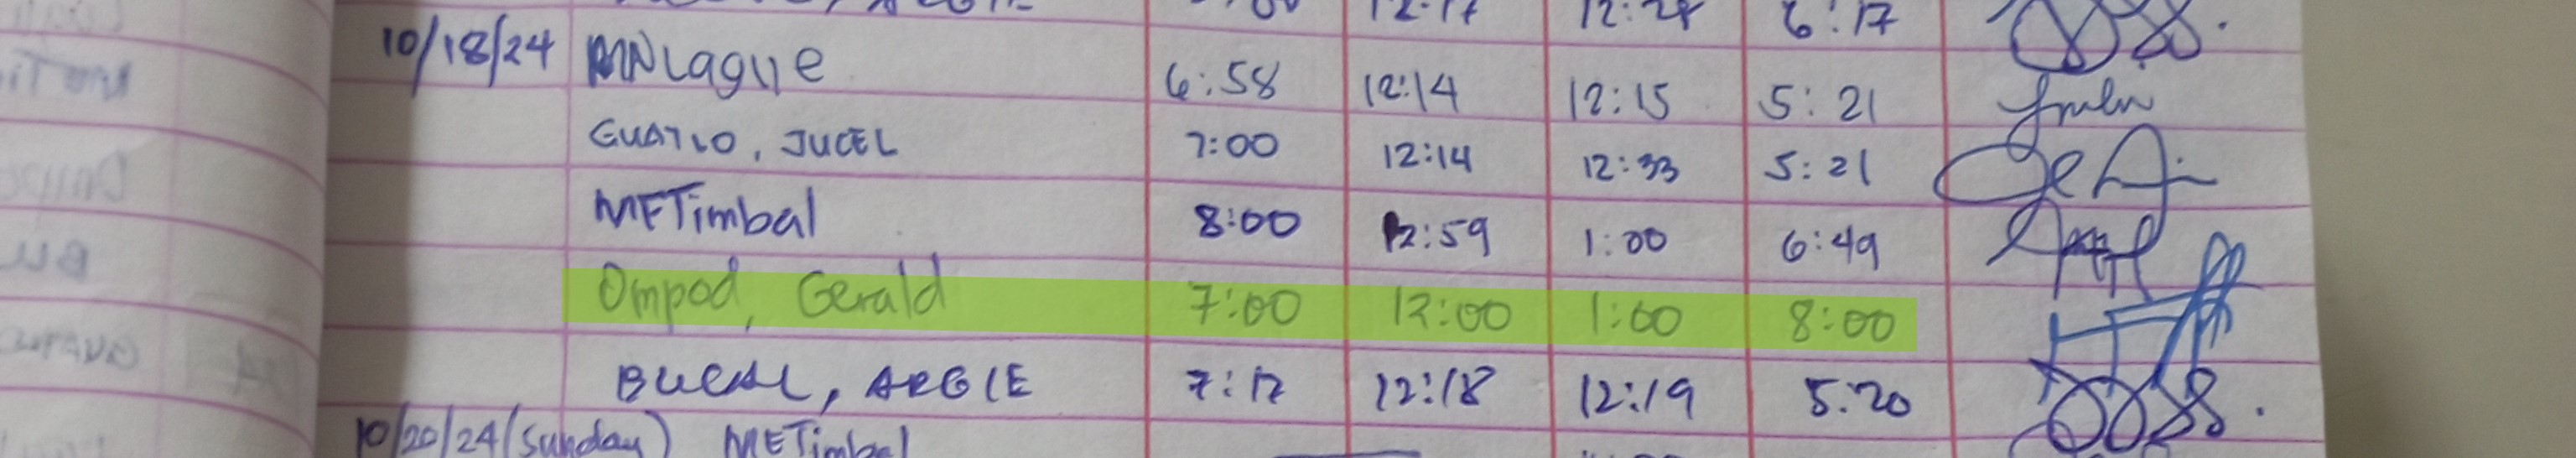 12:17 12:27 6:17
10/18/24 MNLague 6:58 12:14 12:15 5:21
GUATLO, JUCEL 7:00 12:14 12:33 5:21
METimbal 8:00 12:59 1:00 6:49
Ompod, Gerald 7:00 12:00 1:00 8:00
BUCAL, ARGIE 7:12 12:18 12:19 5:20
10/20/24 (Sunday) METimbal